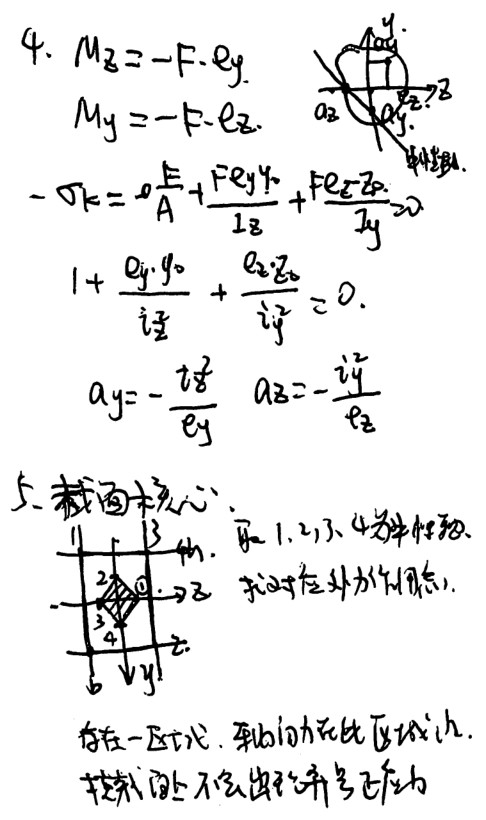 4. Mz = -F·ey.
My = -F·ez.
y
ay
z
az
ez
ay.
中性轴.
-σk = F/A + Feyy₀/Iz + Fez·z₀/Iy = 0
1 + ey·y₀/iz² + ez·z₀/iy² = 0.
ay = -iz²/ey az = -iy²/ez
5、截面核心.
取 1、2、3、4为中性轴.
求对应外力作用点.
1 3
4 h.
2 ① z
3
4 2.
b y
存在一区域. 轴向力在此区域内.
横截面上不会出现异号正应力